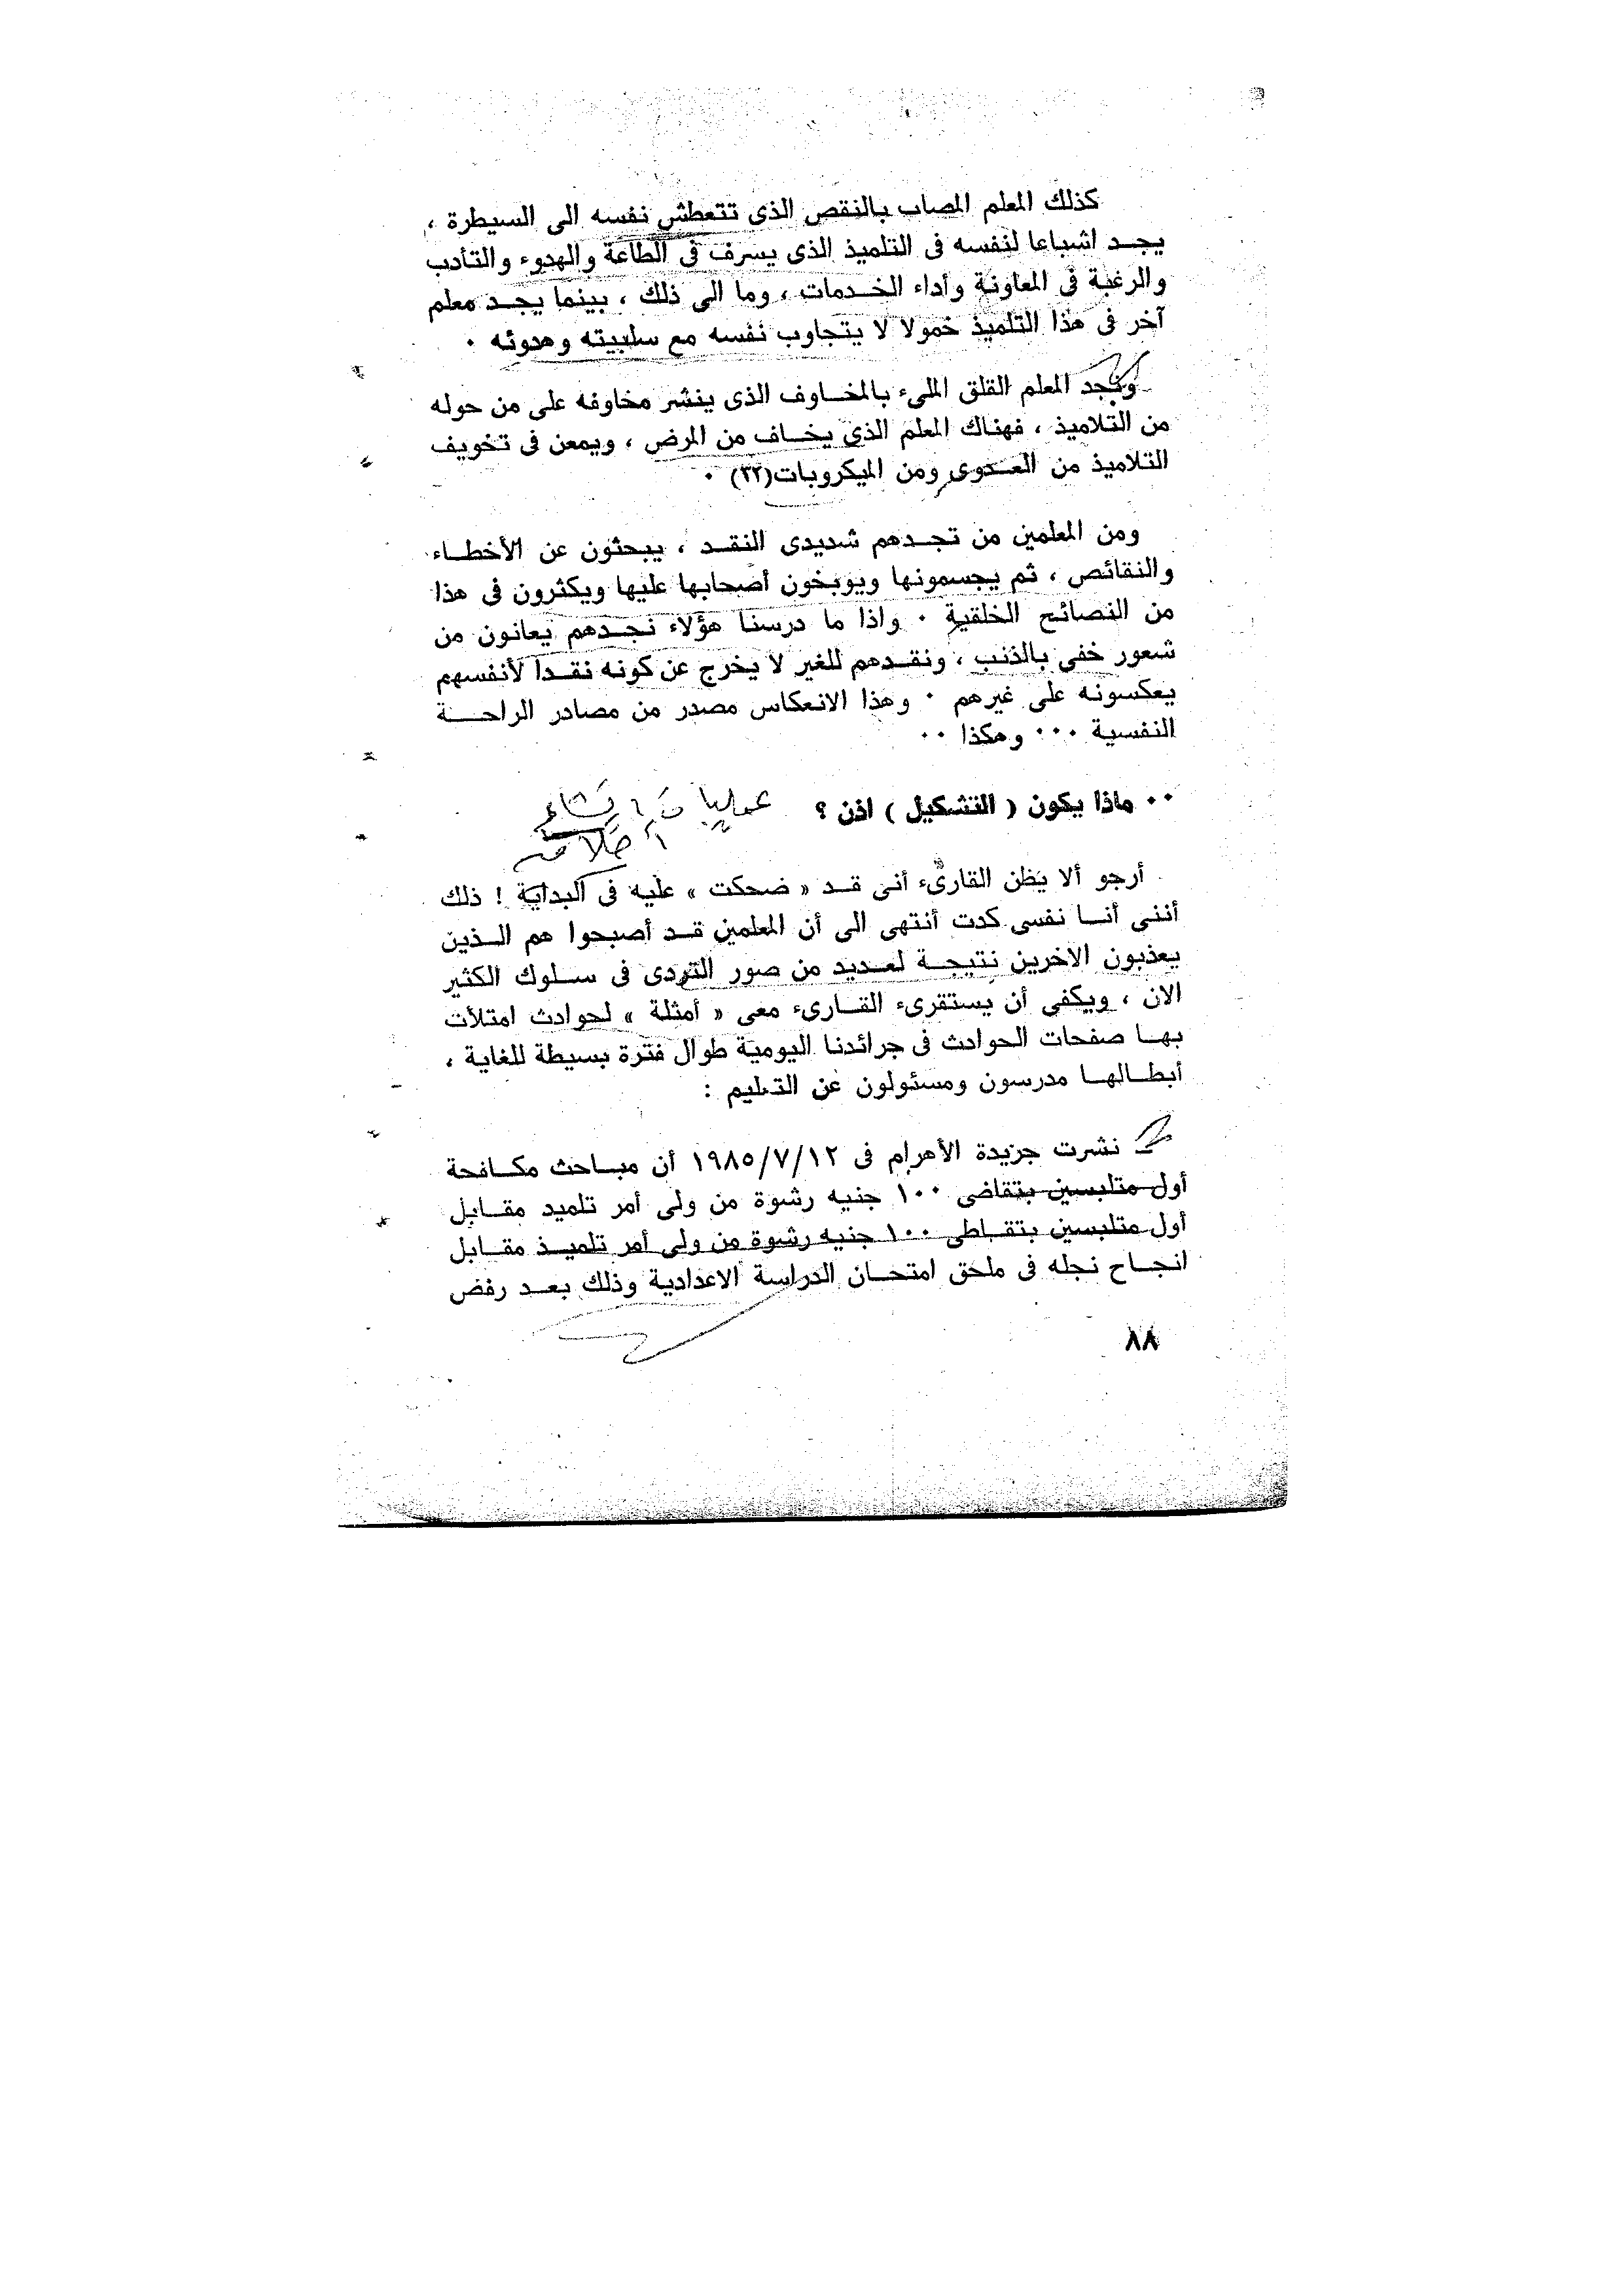 كذلك المعلم المصاب بالنقص الذى تتعطش نفسه الى السيطرة ،
يجـد اشباعا لنفسه فى التلميذ الذى يسرف فى الطاعة والهدوء والتأدب
والرغبة فى المعاونة وأداء الخـدمات ، وما الى ذلك ، بينما يجـد معلم
آخر فى هذا التلميذ خمولا لا يتجاوب نفسه مع سلبيته وهدوئه ٠
ونجد المعلم القلق الملىء بالمخـاوف الذى ينشر مخاوفه على من حوله
من التلاميذ ، فهناك المعلم الذى يخـاف من المرض ، ويمعن فى تخويف
التلاميذ من العـدوى ومن الميكروبات(٣٢) ٠
ومن المعلمين من تجـدهم شديدى النقـد ، يبحثون عن الأخطـاء
والنقائص ، ثم يجسمونها ويوبخون أصحابها عليها ويكثرون فى هذا
من النصائح الخلقية ٠ واذا ما درسنا هؤلاء نجـدهم يعانون من
شعور خفى بالذنب ، ونقـدهم للغير لا يخرج عن كونه نقـدا لأنفسهم
يعكسونه على غيرهم ٠ وهذا الانعكاس مصدر من مصادر الراحـة
النفسية ٠٠٠ وهكذا ٠٠
٠٠ ماذا يكون ( التشكيل ) اذن ؟
أرجو ألا يظن القارىء أنى قـد « ضحكت » عليه فى البداية ! ذلك
أننى أنـا نفسى كدت أنتهى الى أن المعلمين قـد أصبحوا هم الـذين
يعذبون الاخرين نتيجـة لعـديد من صور التردى فى سـلوك الكثير
الان ، ويكفى أن يستقرىء القـارىء معى « أمثلة » لحوادث امتلأت
بهـا صفحات الحوادث فى جرائدنا اليومية طوال فترة بسيطة للغاية ،
أبطـالهـا مدرسون ومسئولون عن التعليم :
نشرت جريدة الأهرام فى ١٩٨٥/٧/١٢ أن مبـاحث مكـافحة
أول متلبسين بتقاضى ١٠٠ جنيه رشوة من ولى أمر تلميد مقـابل
أول متلبسين بتقـاطى ١٠٠ جنيه رشوة من ولى أمر تلميـذ مقـابل
انجـاح نجله فى ملحق امتحـان الدراسة الاعدادية وذلك بعـد رفض
٨٨